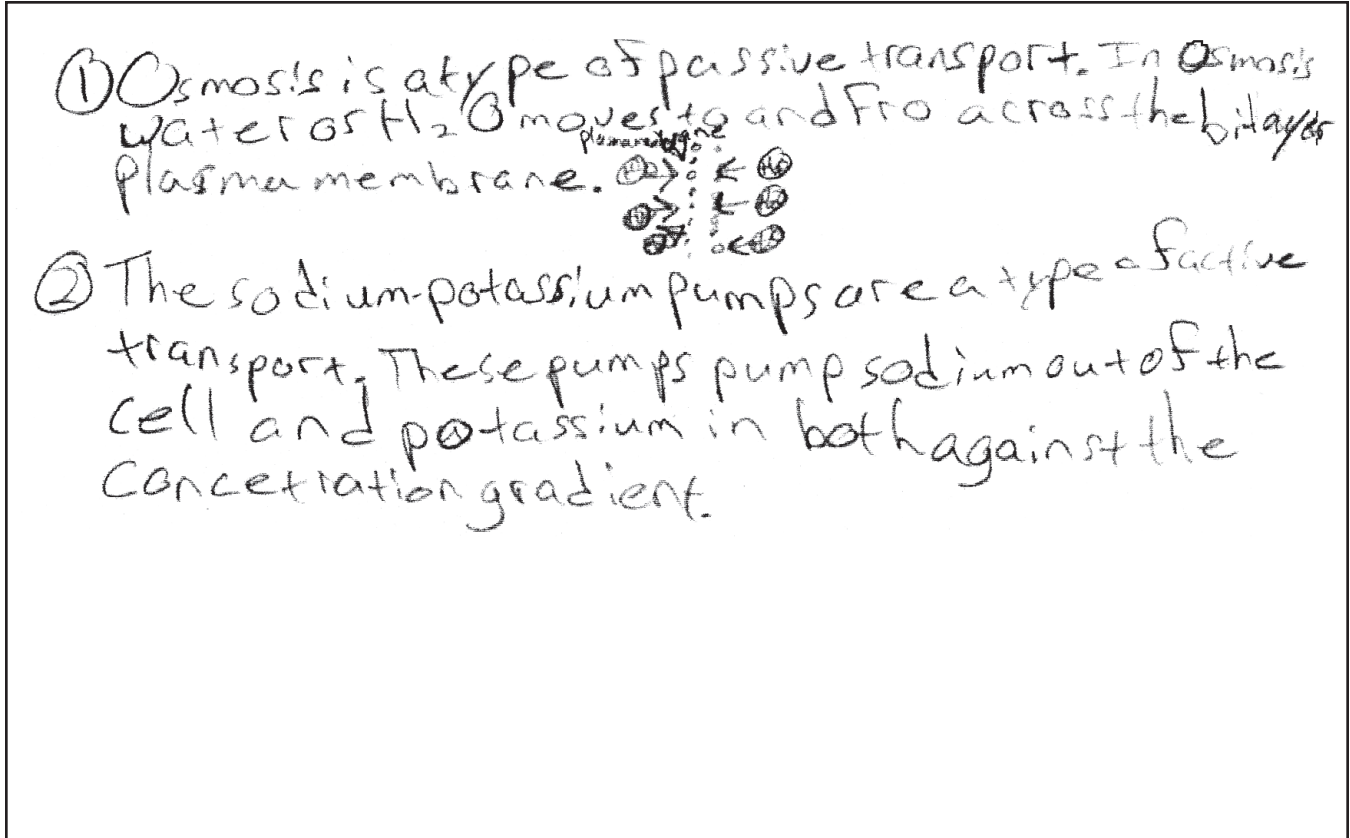 ① Osmosis is a type of passive transport. In Osmosis
water or H₂O moves to and fro across the bilayer
plasma membrane.
② The sodium-potassium pumps are a type of active
transport. These pumps pump sodium out of the
cell and potassium in both against the
concetration gradient.